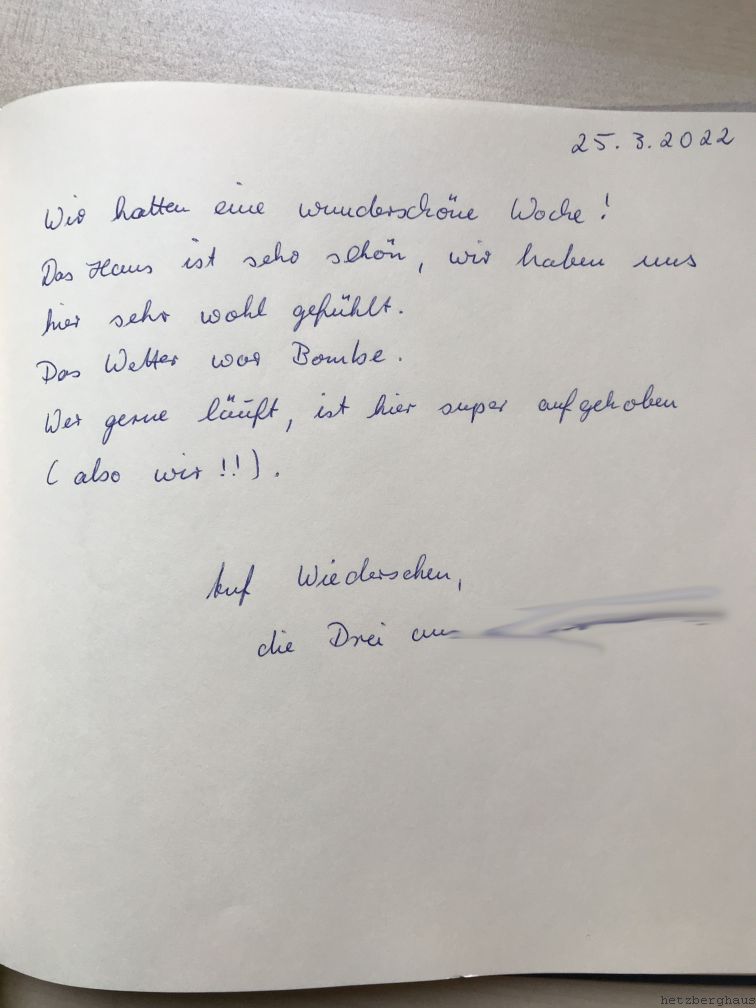 25.3.2022
Wir hatten eine wunderschöne Woche!
Das Haus ist sehr schön, wir haben uns
hier sehr wohl gefühlt.
Das Wetter war Bombe.
Wer gerne läuft, ist hier super aufgehoben
(also wir!!).
Auf Wiedersehen,
die Drei aus
hetzberghaus